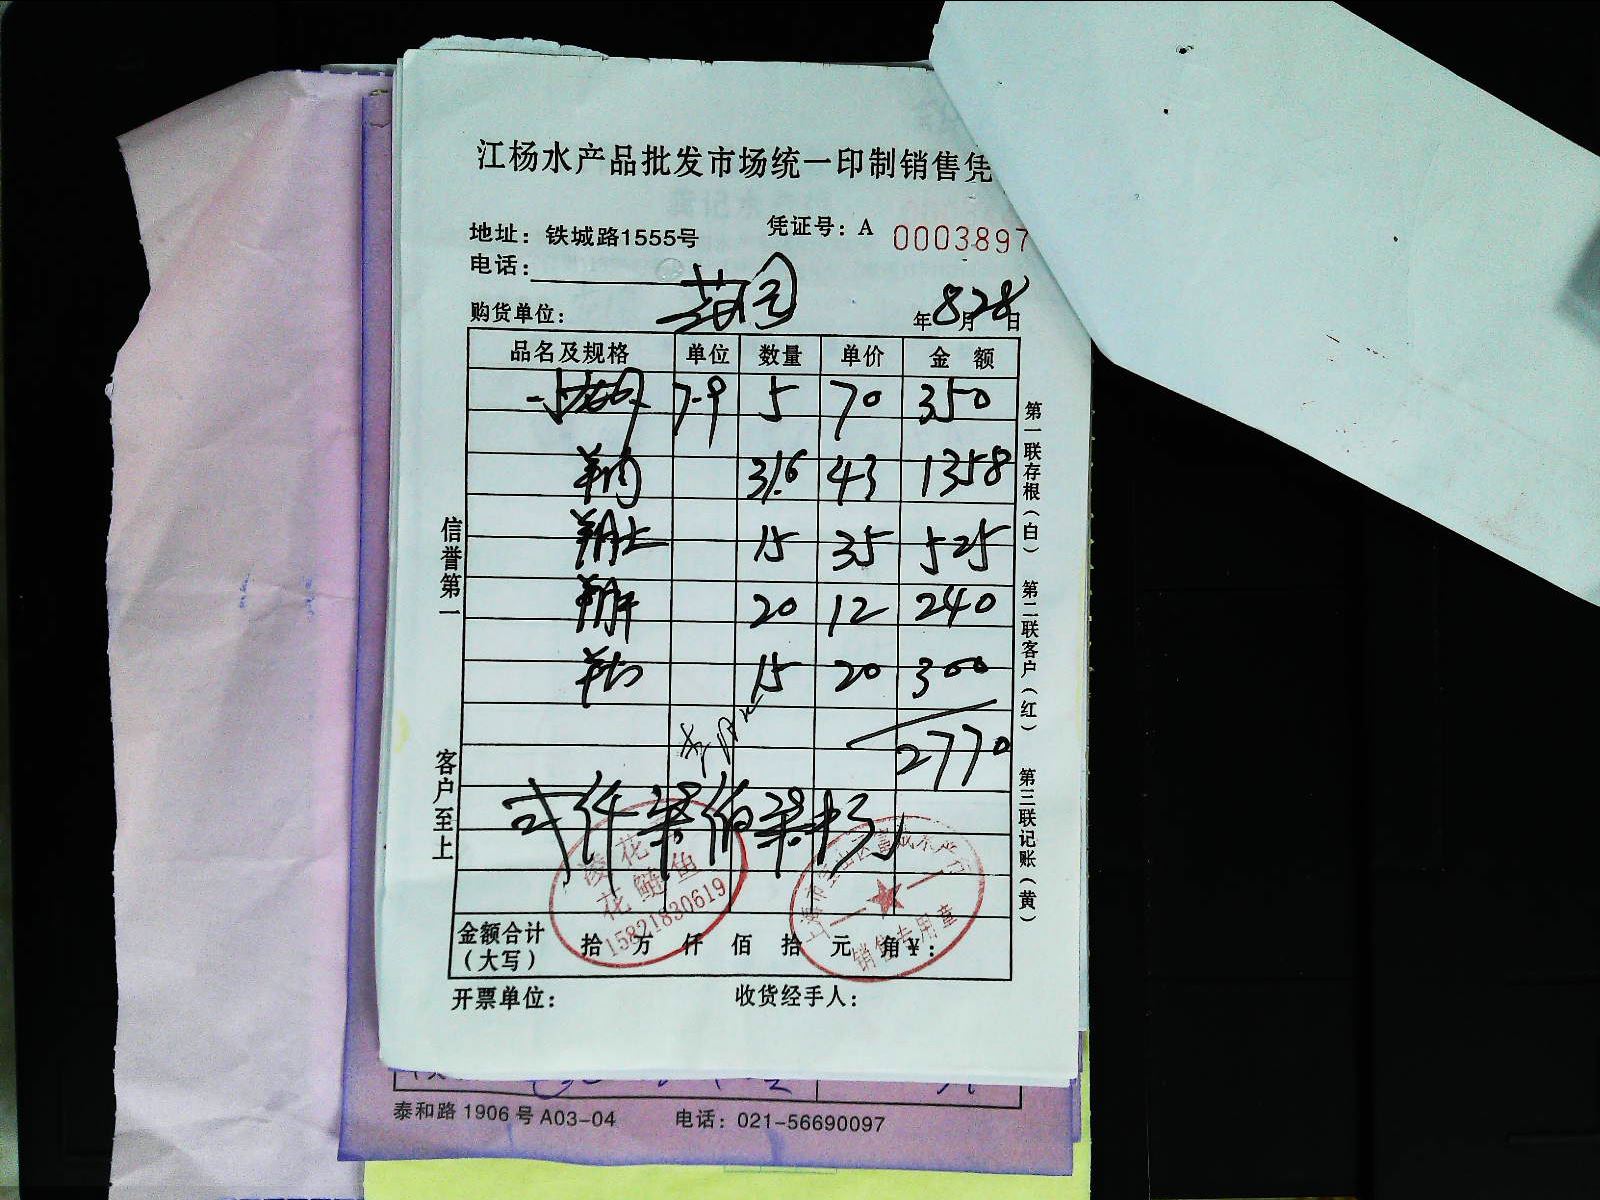 江杨水产品批发市场统一印制销售凭
地址：铁城路1555号 凭证号：A 0003897
电话：
购货单位： 年8月28日
品名及规格 单位 数量 单价 金额
7-9 5 70 350
羊肉 31.6 43 1358
15 35 525
20 12 240
15 20 300
2770
弍仟柒佰柒十元
凌花
花鲢鱼
15821830619
销售专用章
金额合计（大写） 拾 万 仟 佰 拾 元 角 ¥：
开票单位： 收货经手人：
信誉第一
客户至上
第一联存根（白）
第二联客户（红）
第三联记账（黄）
泰和路1906号A03-04 电话：021-56690097